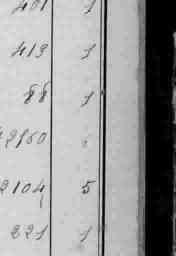 401 1
419 1
88 1
2860 6
2104 5
221 1